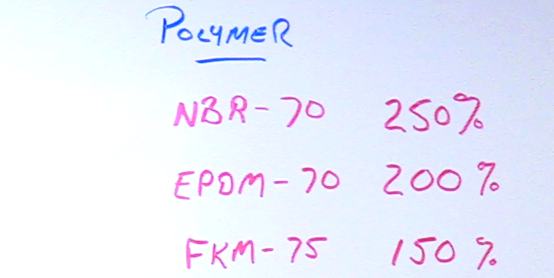 POLYMER
NBR-70 250%
EPDM-70 200%
FKM-75 150%